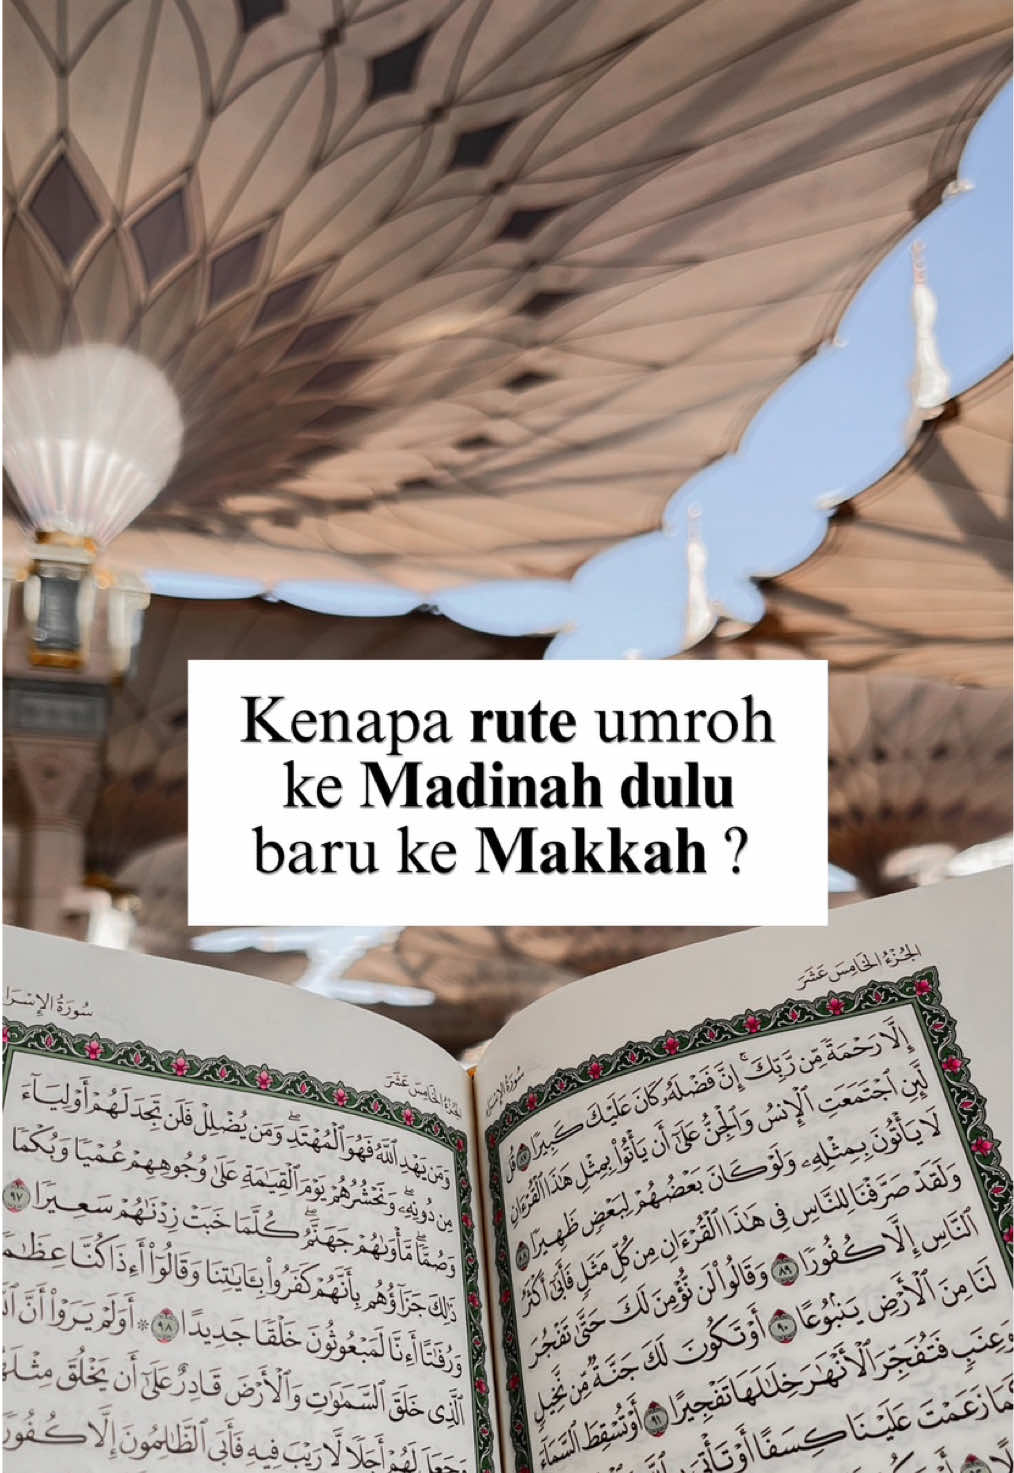 Kenapa rute umroh
ke Madinah dulu
baru ke Makkah ?
الجُزْءُ الخَامِسَ عَشَرَ
إِلَّا رَحْمَةً مِّن رَّبِّكَ ۚ إِنَّ فَضْلَهُۥ كَانَ عَلَيْكَ كَبِيرًا ٨٧ قُل
لَّئِنِ ٱجْتَمَعَتِ ٱلْإِنسُ وَٱلْجِنُّ عَلَىٰٓ أَن يَأْتُوا۟ بِمِثْلِ هَٰذَا ٱلْقُرْءَانِ
لَا يَأْتُونَ بِمِثْلِهِۦ وَلَوْ كَانَ بَعْضُهُمْ لِبَعْضٍ ظَهِيرًا ٨٨
وَلَقَدْ صَرَّفْنَا لِلنَّاسِ فِى هَٰذَا ٱلْقُرْءَانِ مِن كُلِّ مَثَلٍ فَأَبَىٰٓ أَكْثَرُ
ٱلنَّاسِ إِلَّا كُفُورًا ٨٩ وَقَالُوا۟ لَن نُّؤْمِنَ لَكَ حَتَّىٰ تَفْجُرَ
لَنَا مِنَ ٱلْأَرْضِ يَنۢبُوعًا ٩٠ أَوْ تَكُونَ لَكَ جَنَّةٌ مِّن نَّخِيلٍ
وَعِنَبٍ فَتُفَجِّرَ ٱلْأَنْهَٰرَ خِلَٰلَهَا تَفْجِيرًا ٩١ أَوْ تُسْقِطَ ٱلسَّمَآءَ
كَمَا زَعَمْتَ عَلَيْنَا كِسَفًا أَوْ تَأْتِىَ
سُورَةُ الإِسْرَا
الجُزْءُ الخَامِسَ عَشَرَ
وَمَن يَهْدِ ٱللَّهُ فَهُوَ ٱلْمُهْتَدِ ۖ وَمَن يُضْلِلْ فَلَن تَجِدَ لَهُمْ أَوْلِيَآءَ
مِن دُونِهِۦ ۖ وَنَحْشُرُهُمْ يَوْمَ ٱلْقِيَٰمَةِ عَلَىٰ وُجُوهِهِمْ عُمْيًا وَبُكْمًا
وَصُمًّا ۖ مَّأْوَىٰهُمْ جَهَنَّمُ ۖ كُلَّمَا خَبَتْ زِدْنَٰهُمْ سَعِيرًا ٩٧
ذَٰلِكَ جَزَآؤُهُم بِأَنَّهُمْ كَفَرُوا۟ بِـَٔايَٰتِنَا وَقَالُوٓا۟ أَءِذَا كُنَّا عِظَٰمًا
وَرُفَٰتًا أَءِنَّا لَمَبْعُوثُونَ خَلْقًا جَدِيدًا ٩٨ ۞ أَوَلَمْ يَرَوْا۟ أَنَّ
ٱلَّذِى خَلَقَ ٱلسَّمَٰوَٰتِ وَٱلْأَرْضَ قَادِرٌ عَلَىٰٓ أَن يَخْلُقَ مِثْلَهُ
وَجَعَلَ لَهُمْ أَجَلًا لَّا رَيْبَ فِيهِ فَأَبَى ٱلظَّٰلِمُونَ إِلَّا كُفُورًا